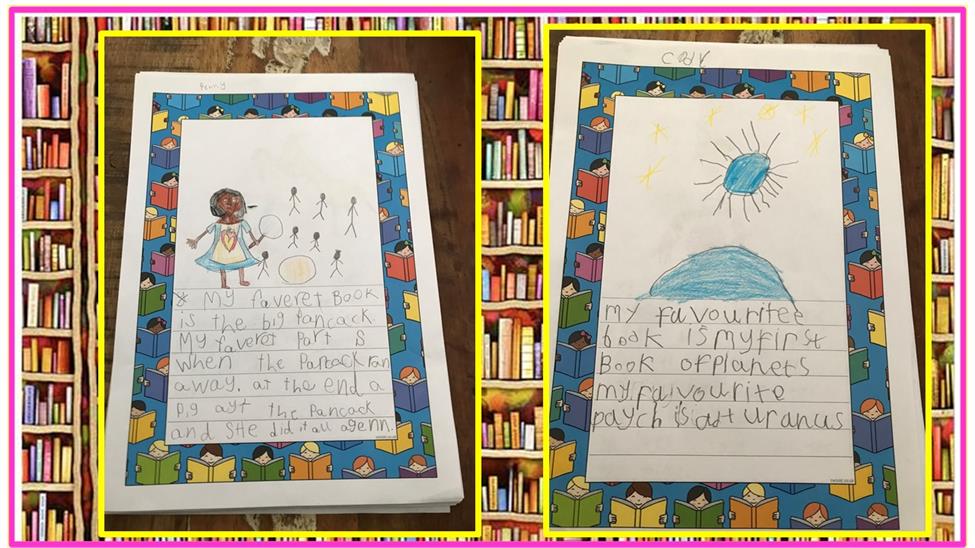 Penny
My faveret Book
is the big Pancack.
My faveret Part is
when the Panback ran
away. at the end a
Pig ayt the Pancack
and she did it all agenn.
Cody
my favouritee
book is myfirst
Book ofplanets
my faivourite
paych is adt uranus